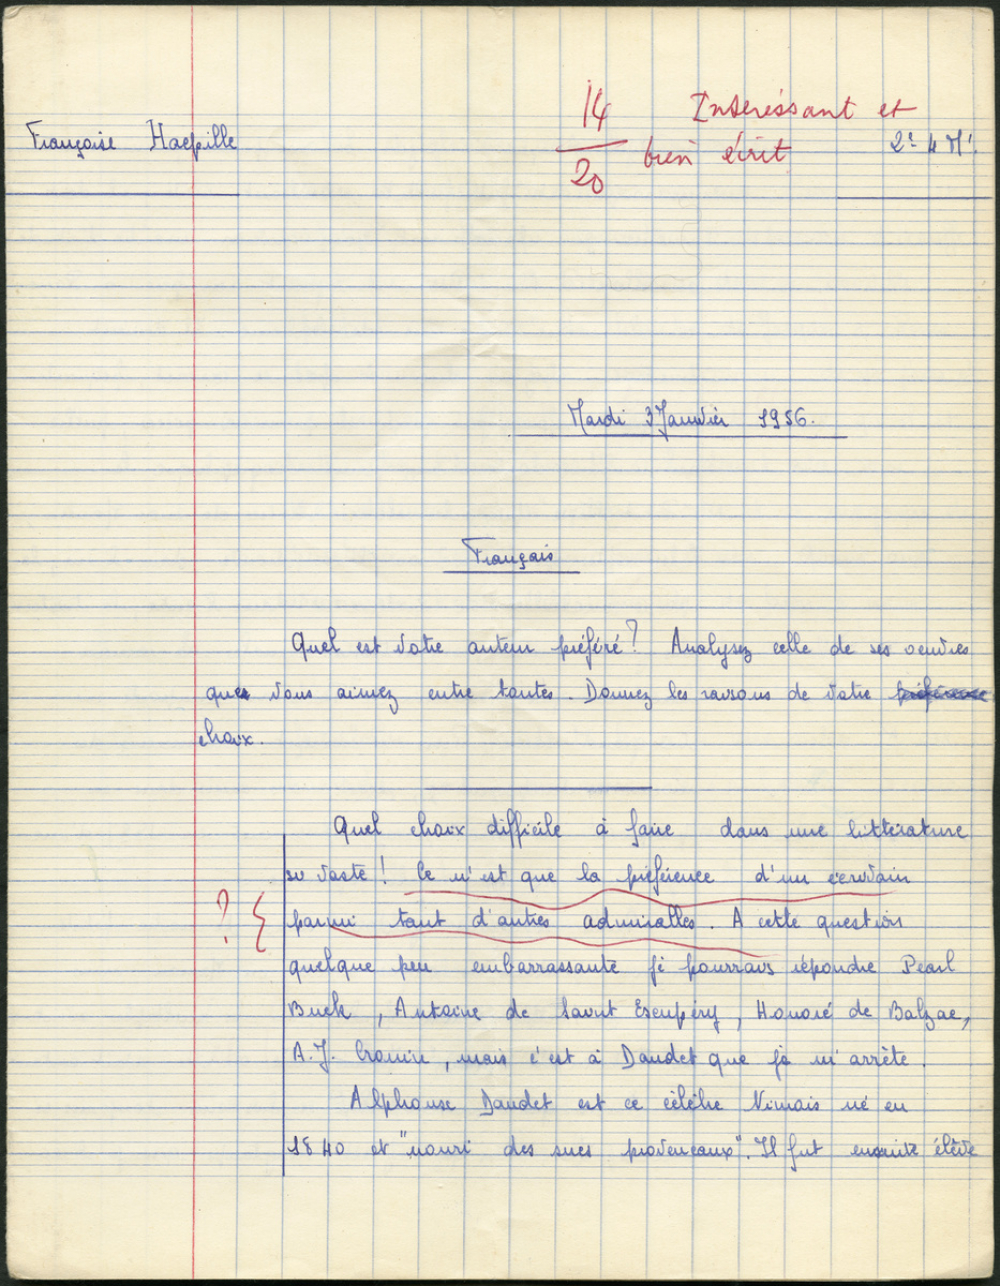 Françoise Haepille
14
20
Intéressant et
bien écrit
2e 4 M1.
Mardi 3 Janvier 1956.
Français
Quel est votre auteur préféré? Analysez celle de ses oeuvres
que vous aimez entre toutes. Donnez les raisons de votre préférence
choix.
Quel choix difficile à faire dans une littérature
si vaste! Ce n'est que la préférence d'un écrivain
? parmi tant d'autres admirables. A cette question
quelque peu embarrassante je pourrais répondre Pearl
Buck, Antoine de Saint Exupéry, Honoré de Balzac,
A.J. Cronin, mais c'est à Daudet que je m'arrête.
Alphonse Daudet est ce célèbre Nimois né en
1840 et "nourri des sucs provencaux". Il fut ensuite élève